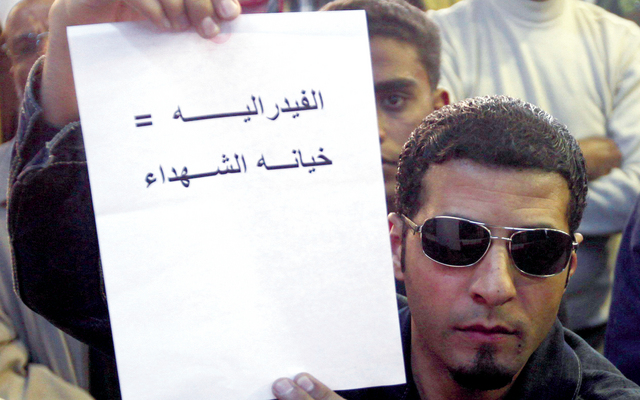 الفيدراليـــــه =
خيانـــه الشـــهداء